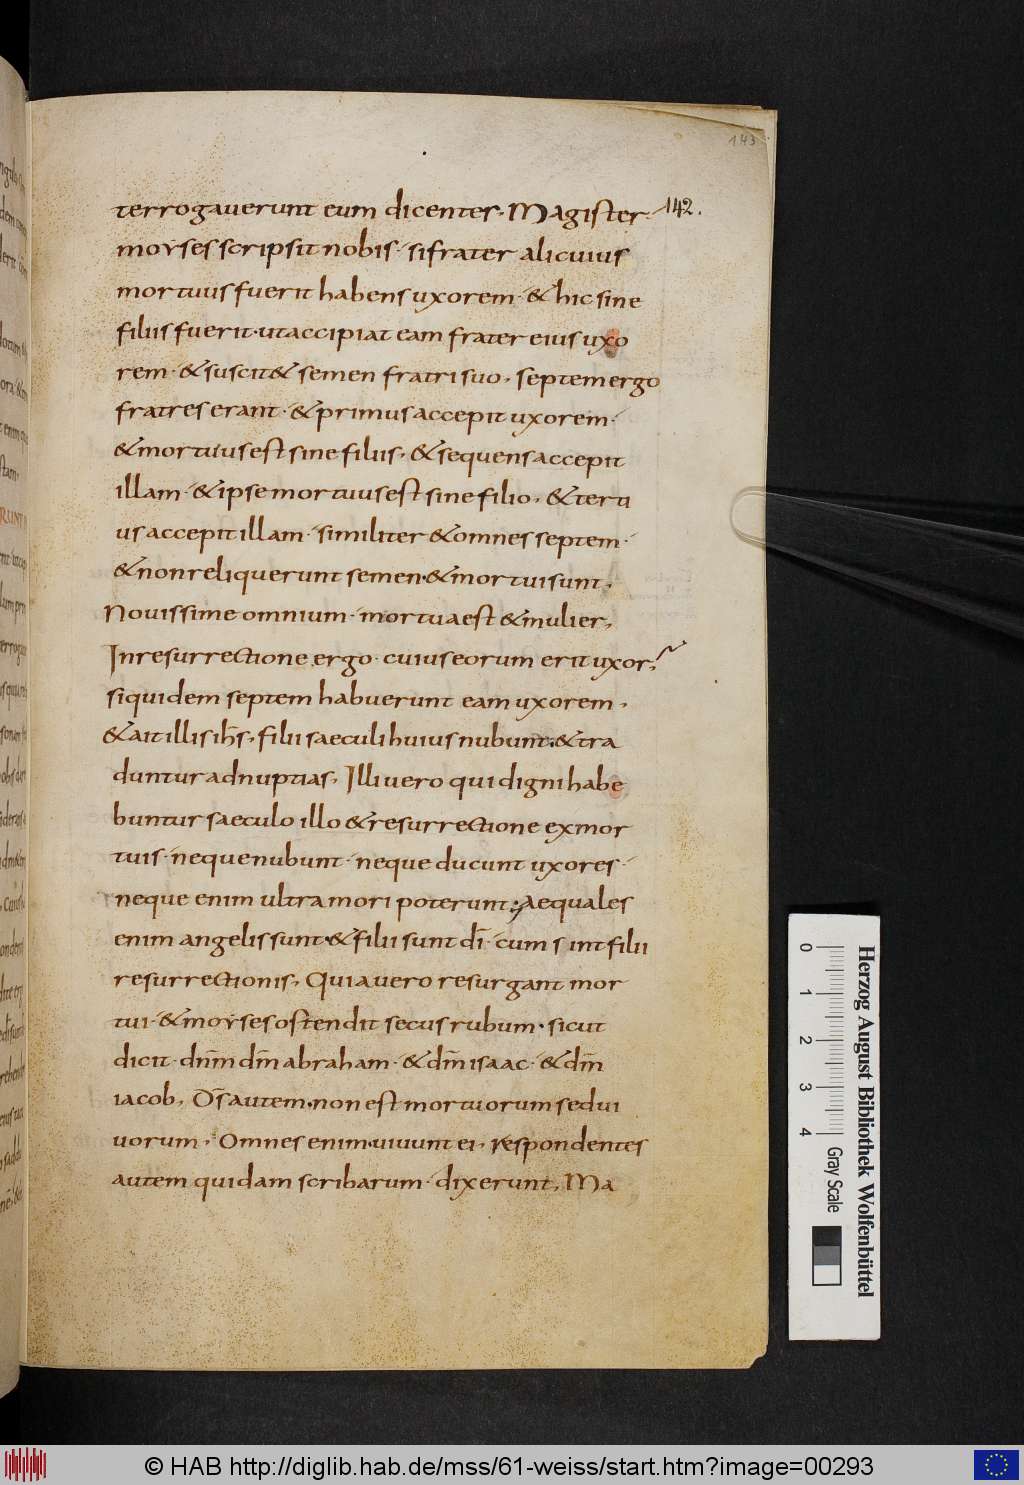 143
terrogauerunt eum dicentes. Magister 142.
moyses scripsit nobis. si frater alicuius
mortuus fuerit habens uxorem. & hic sine
filiis fuerit. ut accipiat eam frater eius uxo
rem. & suscit& semen fratri suo. septem ergo
fratres erant. & primus accepit uxorem.
& mortuus est sine filiis. & sequens accepit
illam. & ipse mortuus est sine filio. & terti
us accepit illam. similiter & omnes septem.
& non reliquerunt semen. & mortui sunt.
Nouissime omnium. mortua est & mulier.
In resurrectione ergo. cuius eorum erit uxor;
siquidem septem habuerunt eam uxorem.
& ait illis ih̄s. filii saeculi huius nubunt. & tra
duntur ad nuptias. Illi uero qui digni habe
buntur saeculo illo & resurrectione ex mor
tuis. neque nubunt. neque ducunt uxores.
neque enim ultra mori poterunt; Aequales
enim angelis sunt. & filii sunt dī. cum sint filii
resurrectionis. Quia uero resurgant mor
tui. & moyses ostendit secus rubum. sicut
dicit. dn̄m dm̄ abraham. & dm̄ isaac. & dm̄
iacob. Ds̄ autem. non est mortuorum sed ui
uorum. Omnes enim. uiuunt ei. respondentes
autem quidam scribarum. dixerunt. Ma
0 1 2 3 4
Gray Scale
Herzog August Bibliothek Wolfenbüttel
© HAB http://diglib.hab.de/mss/61-weiss/start.htm?image=00293